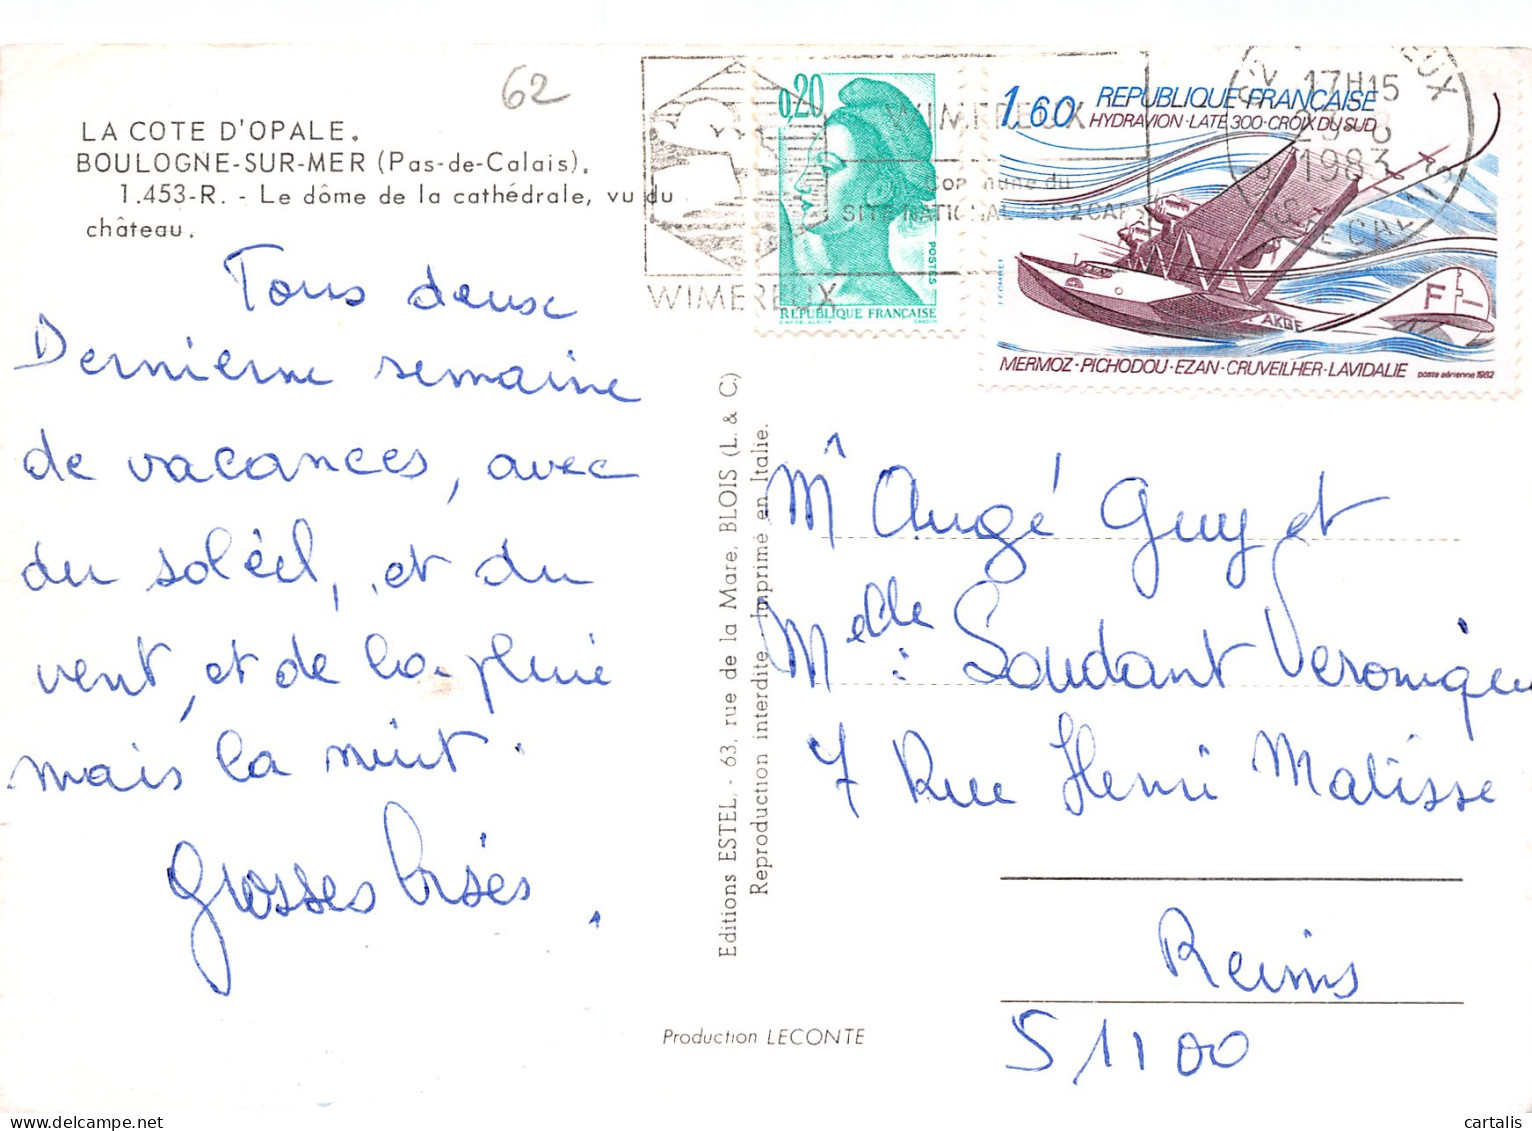 62
LA COTE D'OPALE.
BOULOGNE-SUR-MER (Pas-de-Calais).
1.453-R. - Le dôme de la cathédrale, vu du
château.
Tous deux
Dernière semaine
de vacances, avec
du soléil, et du
vent, et de la pluie
mais la nuit.
grosses bisés.
WIMEREUX
Commune du
SITE NATIONAL DES 2 CAPS
WIMEREUX
0,20
POSTES
REPUBLIQUE FRANÇAISE
17H15
1983
1,60 REPUBLIQUE FRANÇAISE
HYDRAVION·LATE 300·CROIX DU SUD
F
AKGE
MERMOZ·PICHODOU·EZAN·CRUVEILHER·LAVIDALIE poste aérienne 1982
Editions ESTEL, - 63, rue de la Mare, BLOIS (L. & C.)
Reproduction interdite - Imprimé en Italie.
Mr Augé Guy et
Melle : Soudant Veronique
7 Rue Henri Matisse
Reims
51100
Production LECONTE
delcampe.net
cartalis